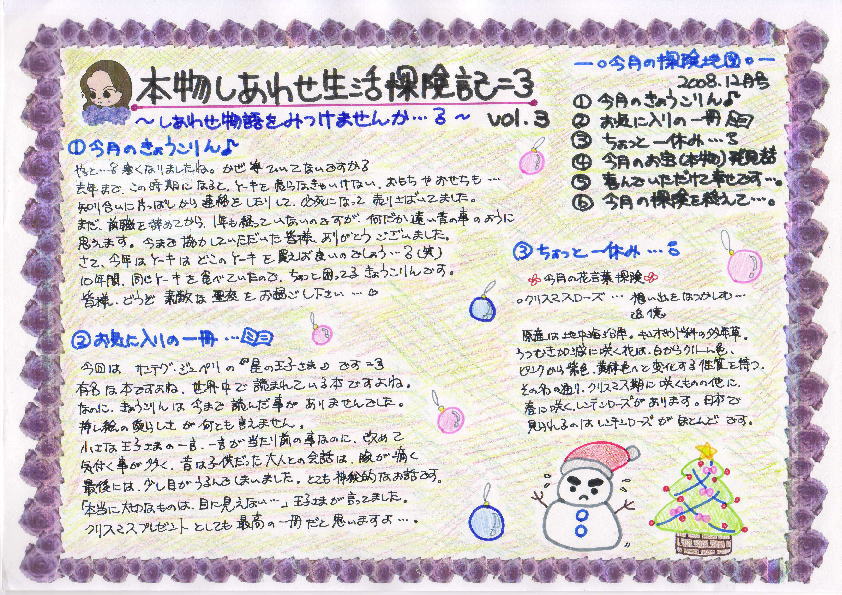 本物しあわせ生活探険記=3
～しあわせ物語をみつけませんか…る～ vol.3
今月の探険地図
2008.12月号
① 今月のきょうこりん♪
② お気に入りの一冊…
③ ちょっと一休み…る
④ 今月のお宝(本物)発見話
⑤ 喜んでいただけて幸せです…。
⑥ 今月の探険を終えて…。
①今月のきょうこりん♪
やっと…る 寒くなりましたね。かぜ等ひいてないですか?
去年まで、この時期になると、ケーキを売らなきゃいけない、おもちやおせちも…
知り合いに片っぱしから連絡をしたりして、必死になって売りさばいてました。
まだ、前職を辞めてから、1年も経っていないのですが、何だか遠い昔の事のように
思えます。今まで協力していただいた皆様、ありがとうございました。
さて、今年はケーキはどこのケーキを買えば良いのでしょう…る(笑)
10年間、同じケーキを食べていたので、ちょっと困ってるきょうこりんです。
皆様、どうぞ素敵な聖夜をお過ごし下さい…
②お気に入りの一冊…
今回は サンテグ・ジュペリの『星の王子さま』です=3
有名な本ですよね、世界中で読まれている本ですよね。
なのに、きょうこりんは今まで読んだ事がありませんでした。
挿し絵の愛らしさが何とも言えません。
小さな王子さまの一言、一言が当たり前の事なのに、改めて
気付く事が多く、昔は子供だった大人との会話は、胸が痛く
最後には、少し目がうるんでしまいました。とても神秘的なお話です。
「本当に大切なものは、目に見えない…」王子さまが言ってました。
クリスマスプレゼントとしても最高の一冊だと思いますよ…。
③ちょっと一休み…る
今月の花言葉探険
○クリスマスローズ… 想い出をなつかしむ…
追憶
原産は地中海沿岸。キンポウゲ科の多年草。
うつむきかげんに咲く花は、白からクリーム色、
ピンクから紫色、黄緑色へと変化する性質を持つ。
その名の通り、クリスマス期に咲くもの他に、
春に咲くレンテンローズがあります。日本で
見られるのはレンテンローズがほとんどです。